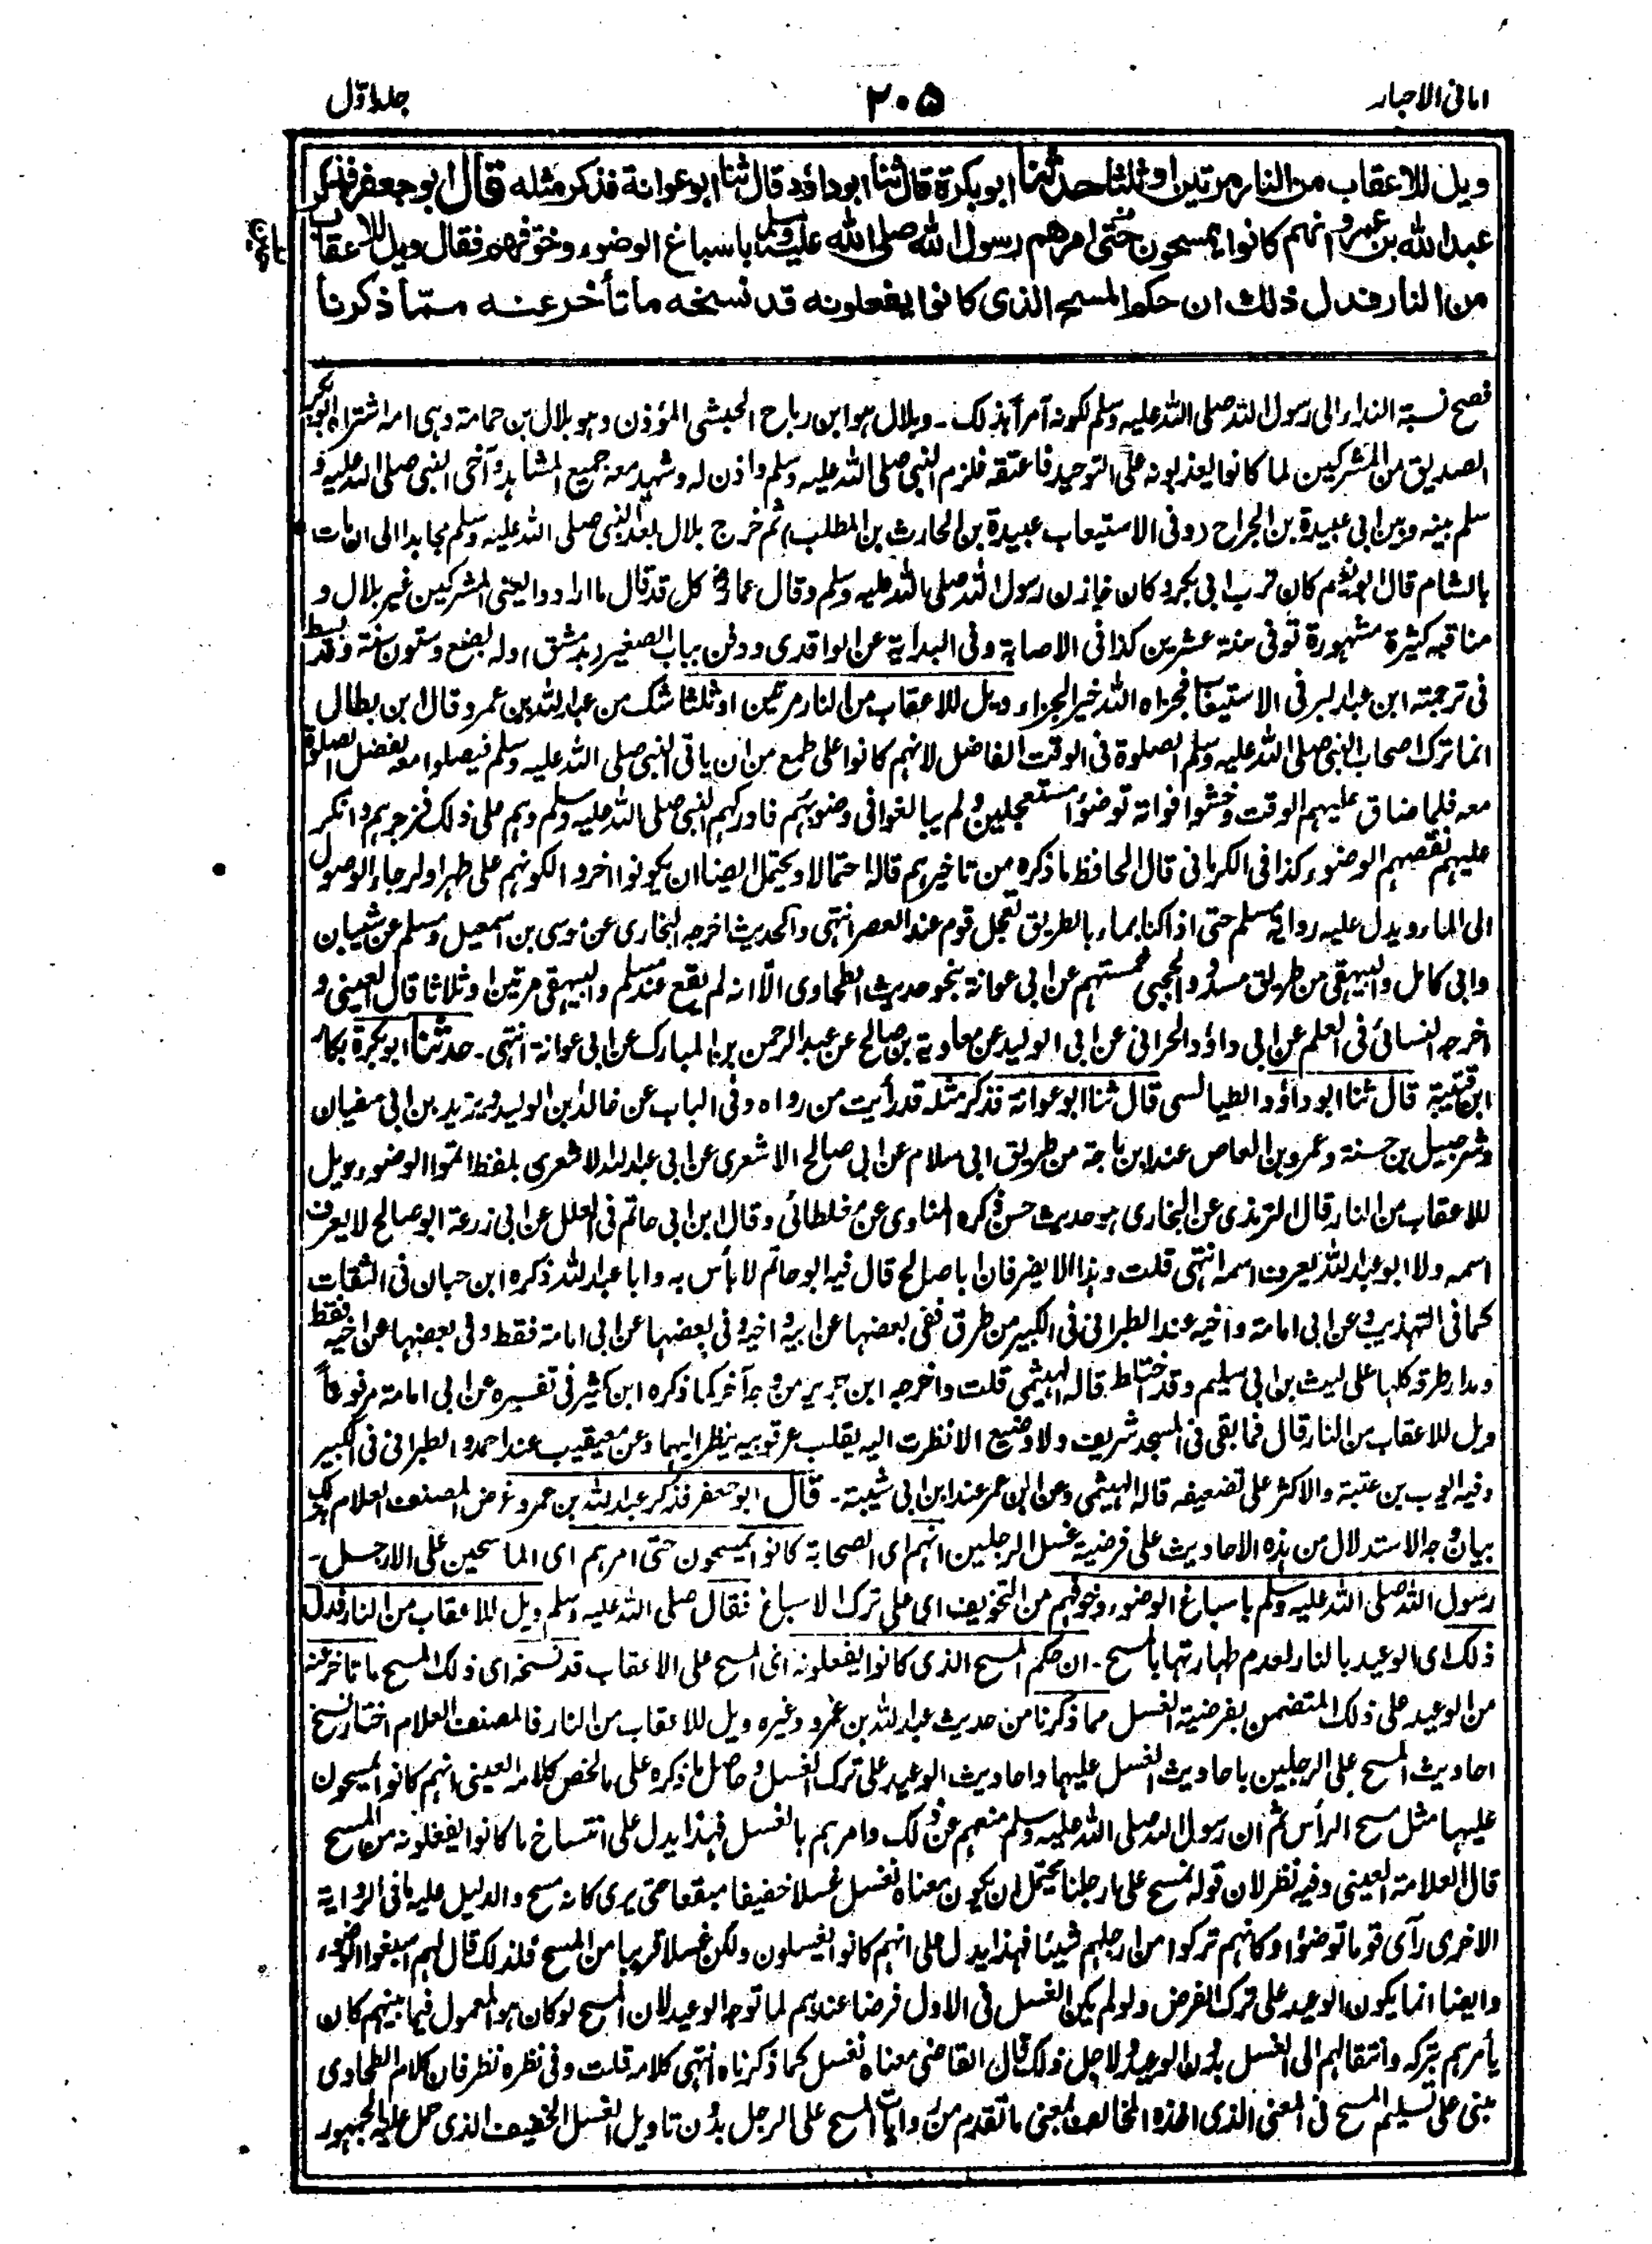 امانی الاحبار ۲۰۵ جلد اوّل
ويل للاعقاب من النار مرتين او ثلثا حدثنا ابو بكرة قال ثنا ابو داؤد قال ثنا ابو عوانة فذكر مثله قال ابو جعفر فذكر
عبد الله بن عمرو انهم كانوا يمسحون حتى امرهم رسول الله صلى الله عليه وسلم باسباغ الوضوء وخوّفهم فقال ويل للاعقاب
من النار فدل ذلك ان حكم المسح الذى كانوا يفعلونه قد نسخه ما تأخر عنه ممّا ذكرنا
فصح نسبة النداء الى رسول الله صلى الله عليه وسلم لكونه آمرا بذلك ۔ وبلال هو ابن رباح الحبشى المؤذن وهو بلال بن حمامة وهى امه اشتراه ابو بكر
الصديق من المشركين لما كانوا يعذبونه على التوحيد فاعتقه فلزم النبى صلى الله عليه وسلم واذن له وشهد معه جميع المشاهد وآخى النبى صلى الله عليه و
سلم بينه وبين ابى عبيدة بن الجراح (وفى الاستيعاب عبيدة بن الحارث بن المطلب) ثم خرج بلال بعد النبى صلى الله عليه وسلم مجاهدا الى ان مات
بالشام قال ابو نعيم كان ترب ابى بكر وكان خازن رسول الله صلى الله عليه وسلم وقال عمار كل قد قال ما ارادوا يعنى المشركين غير بلال و
مناقبه كثيرة مشهورة توفى سنة عشرين كذا فى الاصابة وفى البداية عن الواقدى ودفن بباب الصغير (بدمشق) وله بضع وستون سنة وقد بسط
فى ترجمته ابن عبد البر فى الاستيعاب فجزاه الله خير الجزاء ويل للاعقاب من النار مرتين او ثلثا شك من عبد الله بن عمرو قال ابن بطال
انما ترك اصحاب النبى صلى الله عليه وسلم الصلوة فى الوقت الفاضل لانهم كانوا على طمع من ان ياتى النبى صلى الله عليه وسلم فيصلوا معه لفضل الصلوة
معه فلما ضاق عليهم الوقت وخشوا فواته توضؤا مستعجلين ولم يبالغوا فى وضوئهم فادركهم النبى صلى الله عليه وسلم وهم على ذلك فزجرهم وانكر
عليهم نقصهم الوضوء كذا فى الكرمانى قال الحافظ ما ذكره من تاخيرهم قاله احتمالا ويحتمل ايضا ان يكونوا اخروا لكونهم على طهر او لرجاء الوصول
الى الماء ويدل عليه رواية مسلم حتى اذا كنا بماء بالطريق تعجل قوم عند العصر انتهى والحديث اخرجه البخارى عن موسى بن اسمعيل ومسلم عن شيبان
وابى كامل والبيهقى من طريق مسدد والحجبى خمستهم عن ابى عوانة بنحو حديث الطحاوى الّا انه لم يقع عند مسلم والبيهقى مرتين او ثلاثا قال العينى و
اخرجه النسائى فى العلم عن ابى داؤد الحرانى عن ابى الوليد عن معاوية بن صالح عن عبد الرحمن بن المبارك عن ابى عوانة انتهى ۔ حدثنا ابو بكرة بكار
ابن قتيبة قال ثنا ابو داؤد الطيالسى قال ثنا ابو عوانة فذكر مثله قد رأيت من رواه وفى الباب عن خالد بن الوليد ويزيد بن ابى سفيان
وشرحبيل بن حسنة وعمرو بن العاص عند ابن ماجة من طريق ابى سلام عن ابى صالح الاشعرى عن ابى عبد الله الاشعرى بلفظ اتموا الوضوء ويل
للاعقاب من النار قال الترمذى عن البخارى هو حديث حسن ذكره المناوى عن مغلطائى وقال ابن ابى حاتم فى العلل عن ابى زرعة ابو صالح لا يعرف
اسمه ولا ابو عبد الله يعرف اسمه انتهى قلت وهذا لا يضر فان ابا صالح قال فيه ابو حاتم لا بأس به وابا عبد الله ذكره ابن حبان فى الثقات
كما فى التهذيب وعن ابى امامة واخيه عند الطبرانى فى الكبير من طرق ففى بعضها عن ابيه واخيه وفى بعضها عن ابى امامة فقط وفى بعضها عن اخيه فقط
ومدار طرقه كلها على ليث بن ابى سليم وقد اختلط قاله الهيثمى قلت واخرجه ابن جرير من وجه آخر كما ذكره ابن كثير فى تفسيره عن ابى امامة مرفوعاً
ويل للاعقاب من النار قال فما بقى فى المسجد شريف ولا وضيع الا نظرت اليه يقلب عرقوبيه ينظر اليهما وعن معيقيب عند احمد والطبرانى فى الكبير
وفيه ايوب بن عتبة والاكثر على تضعيفه قاله الهيثمى وعن ابن عمر عند ابن ابى شيبة ۔ قال ابو جعفر فذكر عبد الله بن عمرو غرض المصنف العلام بذلك
بيان وجه الاستدلال من هذه الاحاديث على فرضية غسل الرجلين انهم اى الصحابة كانوا يمسحون حتى امرهم اى الماسحين على الارجل ۔
رسول الله صلى الله عليه وسلم باسباغ الوضوء وخوفهم من التخويف اى على ترك الاسباغ فقال صلى الله عليه وسلم ويل للاعقاب من النار فدل
ذلك اى الوعيد بالنار لعدم طهارتها بالمسح ۔ ان حكم المسح الذى كانوا يفعلونه اى المسح على الاعقاب قد نسخه اى ذلك المسح ما تاخر عنه
من الوعيد على ذلك المتضمن بفرضية الغسل مما ذكرنا من حديث عبد الله بن عمرو وغيره ويل للاعقاب من النار فالمصنف العلام اختار نسخ
احاديث المسح على الرجلين باحاديث الغسل عليهما واحاديث الوعيد على ترك الغسل وحاصل ما ذكره على ما لخص كلامه العينى انهم كانوا يمسحون
عليها مثل مسح الرأس ثم ان رسول الله صلى الله عليه وسلم منعهم عن ذلك وامرهم بالغسل فهذا يدل على انتساخ ما كانوا يفعلونه من المسح
قال العلامة العينى وفيه نظر لان قوله نمسح على ارجلنا يحتمل ان يكون معناه نغسل غسلا خفيفا مبقعا حتى يرى كانه مسح والدليل عليه ما فى الرواية
الاخرى رآى قوما توضؤا وكانهم تركوا من ارجلهم شيئا فهذا يدل على انهم كانوا يغسلون ولكن غسلا قريبا من المسح فلذلك قال لهم اسبغوا الوضوء
وايضا انما يكون الوعيد على ترك الفرض ولو لم يكن الغسل فى الاول فرضا عندهم لما توجه الوعيد لان المسح لو كان هو المعمول فيما بينهم كان
يأمرهم بتركه وانتقالهم الى الغسل بدون الوعيد ولاجل ذلك قال القاضى معناه نغسل كما ذكرناه انتهى كلامه قلت وفى نظره نظر فان كلام الطحاوى
مبنى على تسليم المسح فى المعنى الذى اخذه المخالف بمعنى ما تقدم من روايات المسح على الرجل بدون تاويل الغسل الخفيف الذى حمل عليه الجمهور